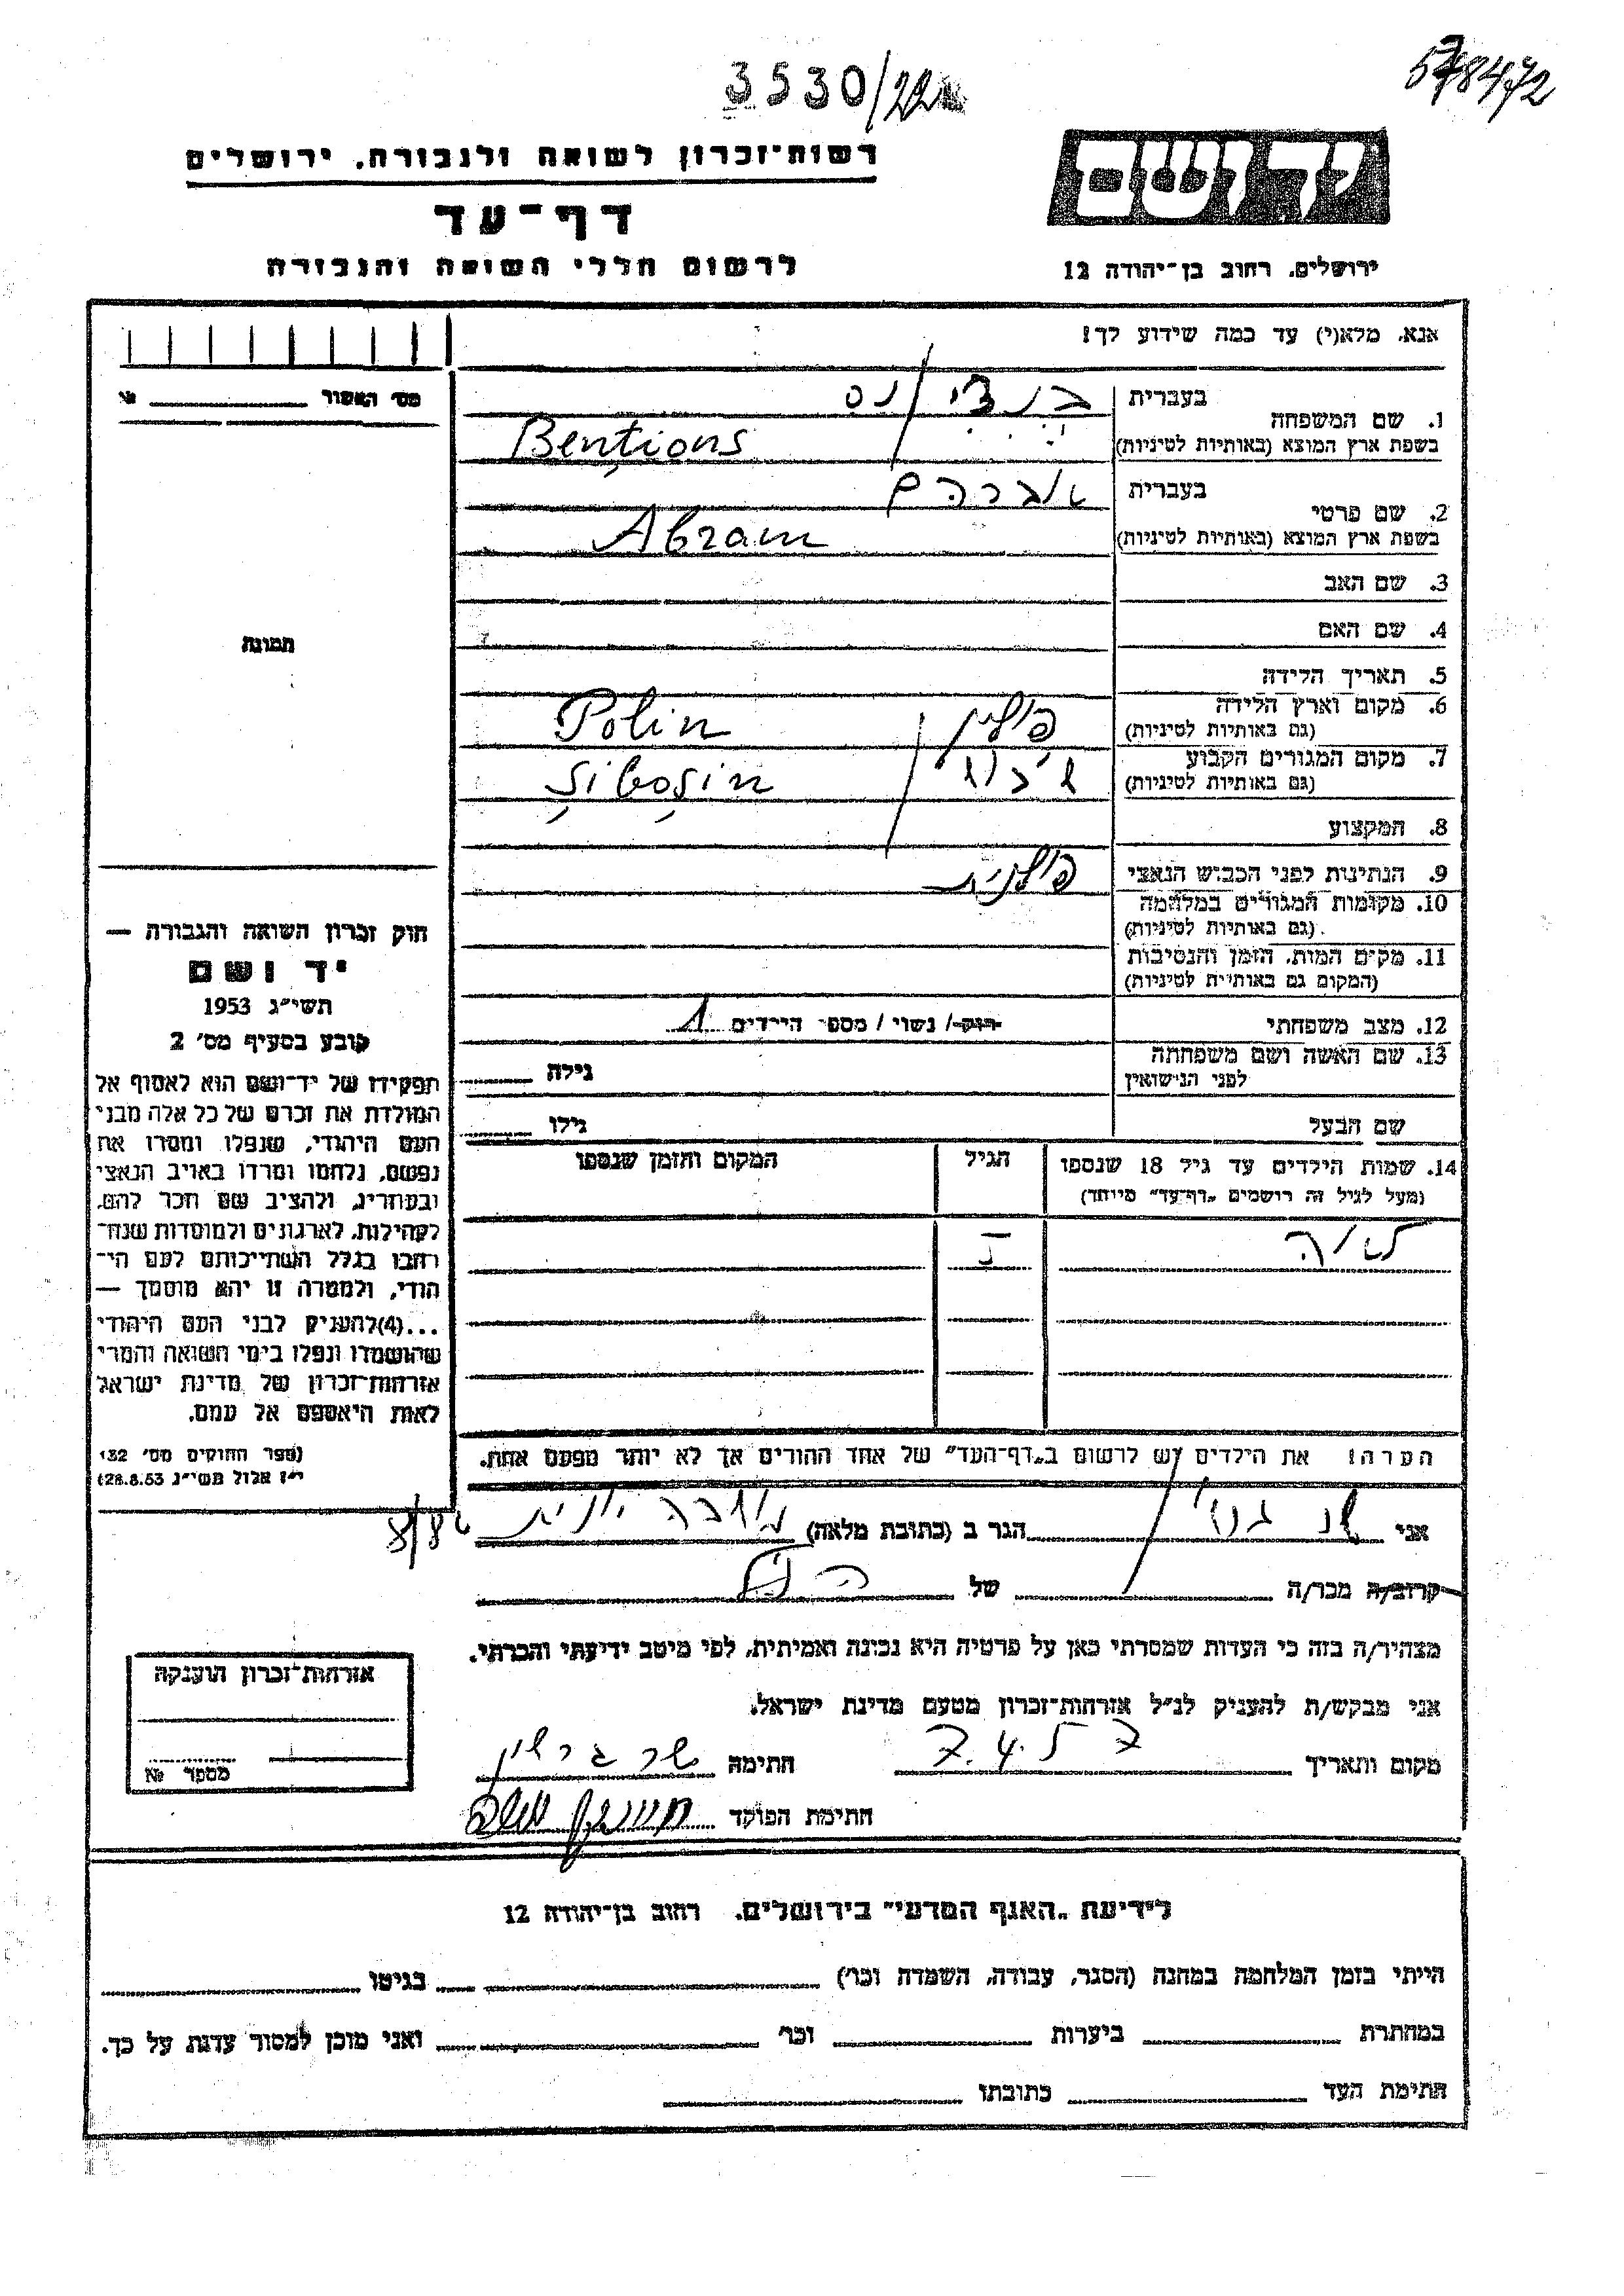 3530/22
578472
יד ושם
רשות-זכרון לשואה ולגבורה, ירושלים
דף-עד
לרשום חללי השואה והגבורה
ירושלים, רחוב בן-יהודה 12
אנא, מלא(י) עד כמה שידוע לך!
מס' האשור №
תמונת
1. שם המשפחה
בעברית
בשפת ארץ המוצא (באותיות לטיניות)
Bențions
2. שם פרטי
בעברית אברהם
בשפת ארץ המוצא (באותיות לטיניות)
Abram
3. שם האב
4. שם האם
5. תאריך הלידה
6. מקום וארץ הלידה
(גם באותיות לטיניות)
פולין Polin
7. מקום המגורים הקבוע
(גם באותיות לטיניות)
Șiboșin
8. המקצוע
9. הנתינות לפני הכבוש הנאצי פולנית
10. מקומות המגורים במלחמה
(גם באותיות לטיניות)
11. מקום המות, הזמן והנסיבות
(המקום גם באותיות לטיניות)
12. מצב משפחתי רווק / נשוי / מספר הילדים 1
13. שם האשה ושם משפחתה
לפני הנישואין
גילה
שם הבעל גילו
14. שמות הילדים עד גיל 18 שנספו
(מעל לגיל זה רושמים "דף-עד" מיוחד)
הגיל
המקום והזמן שנספו
לאה
הערה: את הילדים יש לרשום ב"דף-העד" של אחד ההורים אך לא יותר מפעם אחת.
חוק זכרון השואה והגבורה —
יד ושם
תשי"ג 1953
קובע בסעיף מס' 2
תפקידו של יד-ושם הוא לאסוף אל
המולדת את זכרם של כל אלה מבני
העם היהודי, שנפלו ומסרו את
נפשם, נלחמו ומרדו באויב הנאצי
ובעוזריו, ולהציב שם וזכר להם,
לקהילות, לארגונים ולמוסדות שנח-
רבו בגלל השתייכותם לעם הי-
הודי, ולמטרה זו יהא מוסמך —
...(4)להעניק לבני העם היהודי
שהושמדו ונפלו בימי השואה והמרי
אזרחות-זכרון של מדינת ישראל
לאות היאספם אל עמם.
(ספר החוקים מס' 132
י"ז אלול תשי"ג 28.8.53)
אני הגר ב (כתובת מלאה)
קרוב/ה מכר/ה של הנ"ל
מצהיר/ה בזה כי העדות שמסרתי כאן על פרטיה היא נכונה ואמיתית, לפי מיטב ידיעתי והכרתי.
אני מבקש/ת להעניק לנ"ל אזרחות-זכרון מטעם מדינת ישראל.
מקום ותאריך חתימה
חתימת הפוקד
אזרחות-זכרון הוענקה
מספר №
לידיעת "האגף המדעי" בירושלים, רחוב בן-יהודה 12
הייתי בזמן המלחמה במחנה (הסגר, עבודה, השמדה וכו') בגיטו
במחתרת ביערות וכו' ואני מוכן למסור עדות על כך.
חתימת העד כתובתו